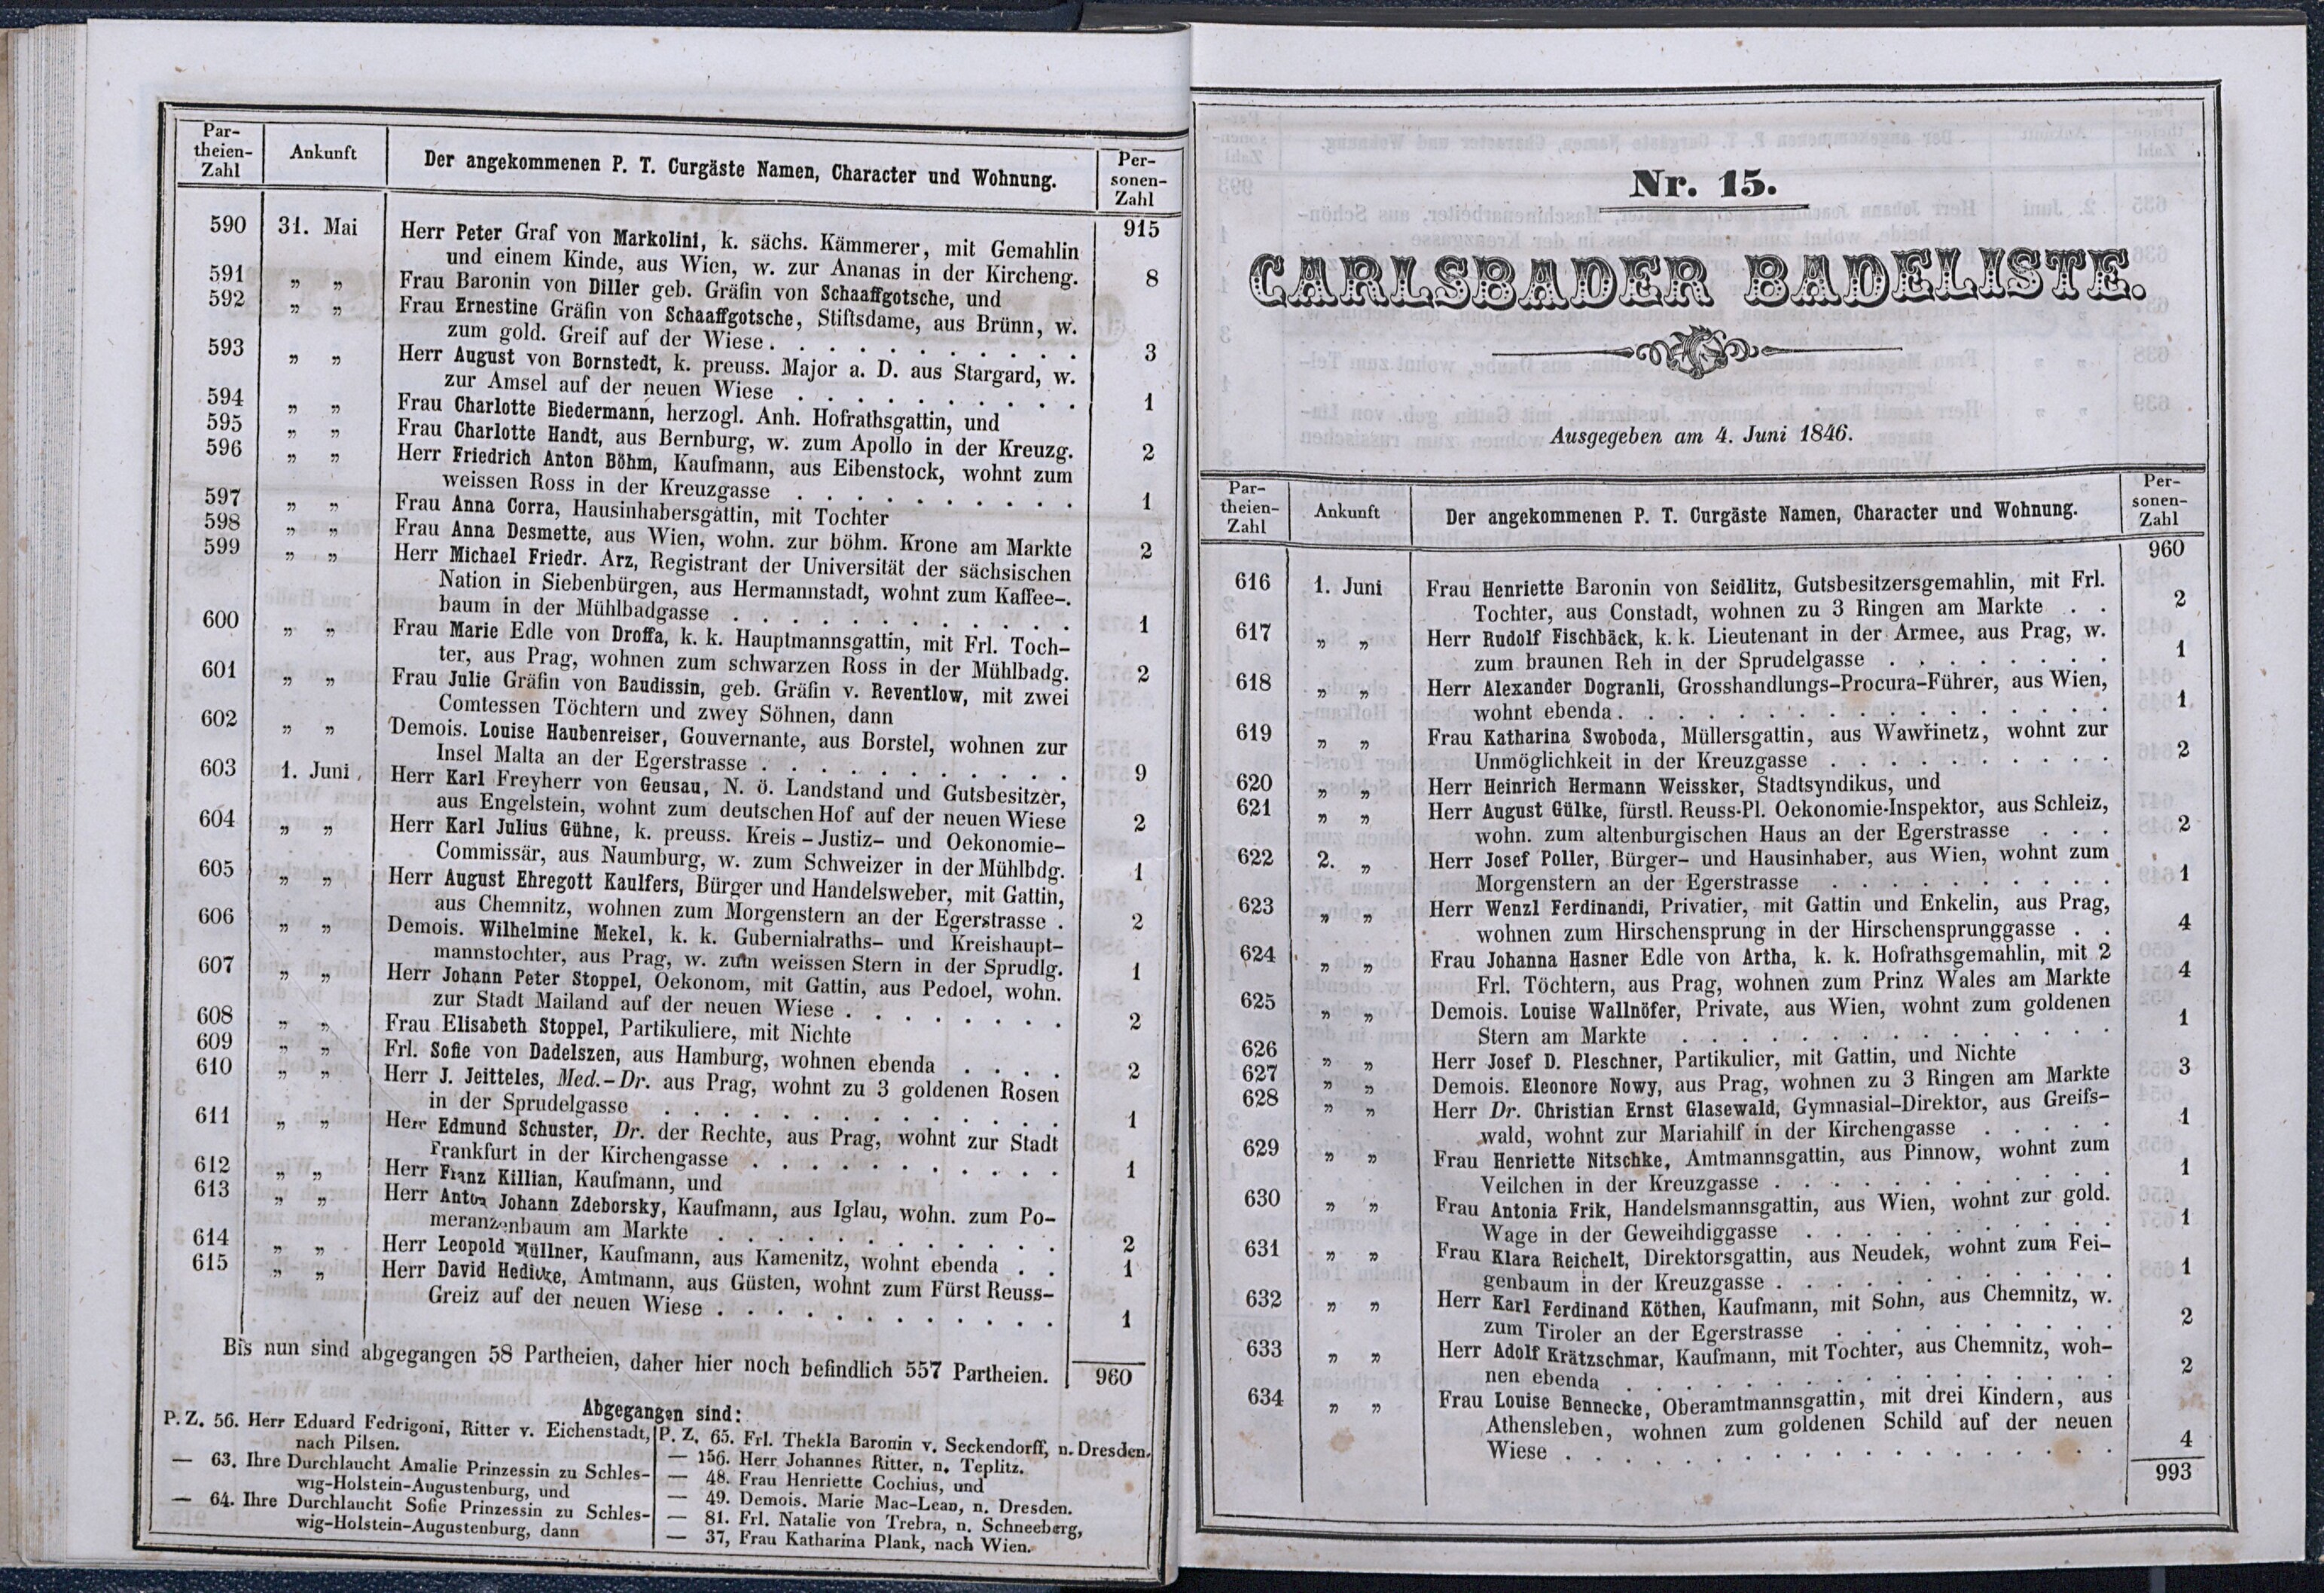 Par-
theien-
Zahl
Ankunft
Der angekommenen P. T. Curgäste Namen, Character und Wohnung.
Per-
sonen-
Zahl
915
590 31. Mai Herr Peter Graf von Markolini, k. sächs. Kämmerer, mit Gemahlin
und einem Kinde, aus Wien, w. zur Ananas in der Kircheng. 8
591 „ „ Frau Baronin von Diller geb. Gräfin von Schaaffgotsche, und
592 „ „ Frau Ernestine Gräfin von Schaaffgotsche, Stiftsdame, aus Brünn, w.
zum gold. Greif auf der Wiese . . . . . . . . . . . 3
593 „ „ Herr August von Bornstedt, k. preuss. Major a. D. aus Stargard, w.
zur Amsel auf der neuen Wiese . . . . . . . . . . 1
594 „ „ Frau Charlotte Biedermann, herzogl. Anh. Hofrathsgattin, und
595 „ „ Frau Charlotte Handt, aus Bernburg, w. zum Apollo in der Kreuzg. 2
596 „ „ Herr Friedrich Anton Böhm, Kaufmann, aus Eibenstock, wohnt zum
weissen Ross in der Kreuzgasse . . . . . . . . . . 1
597 „ „ Frau Anna Corra, Hausinhabersgattin, mit Tochter
598 „ „ Frau Anna Desmette, aus Wien, wohn. zur böhm. Krone am Markte 2
599 „ „ Herr Michael Friedr. Arz, Registrant der Universität der sächsischen
Nation in Siebenbürgen, aus Hermannstadt, wohnt zum Kaffee-.
baum in der Mühlbadgasse . . . . . . . . . . . . 1
600 „ „ Frau Marie Edle von Droffa, k. k. Hauptmannsgattin, mit Frl. Toch-
ter, aus Prag, wohnen zum schwarzen Ross in der Mühlbadg. 2
601 „ „ Frau Julie Gräfin von Baudissin, geb. Gräfin v. Reventlow, mit zwei
Comtessen Töchtern und zwey Söhnen, dann
602 „ „ Demois. Louise Haubenreiser, Gouvernante, aus Borstel, wohnen zur
Insel Malta an der Egerstrasse . . . . . . . . . . . 9
603 1. Juni Herr Karl Freyherr von Geusau, N. ö. Landstand und Gutsbesitzer,
aus Engelstein, wohnt zum deutschen Hof auf der neuen Wiese 2
604 „ „ Herr Karl Julius Gühne, k. preuss. Kreis-Justiz- und Oekonomie-
Commissär, aus Naumburg, w. zum Schweizer in der Mühlbdg. 1
605 „ „ Herr August Ehregott Kaulfers, Bürger und Handelsweber, mit Gattin,
aus Chemnitz, wohnen zum Morgenstern an der Egerstrasse . 2
606 „ „ Demois. Wilhelmine Mekel, k. k. Gubernialraths- und Kreishaupt-
mannstochter, aus Prag, w. zum weissen Stern in der Sprudlg. 1
607 „ „ Herr Johann Peter Stoppel, Oekonom, mit Gattin, aus Pedoel, wohn.
zur Stadt Mailand auf der neuen Wiese . . . . . . . . 2
608 „ „ Frau Elisabeth Stoppel, Partikuliere, mit Nichte
609 „ „ Frl. Sofie von Dadelszen, aus Hamburg, wohnen ebenda . . . . 2
610 „ „ Herr J. Jeitteles, Med.-Dr. aus Prag, wohnt zu 3 goldenen Rosen
in der Sprudelgasse . . . . . . . . . . . . . . 1
611 „ „ Herr Edmund Schuster, Dr. der Rechte, aus Prag, wohnt zur Stadt
Frankfurt in der Kirchengasse . . . . . . . . . . . 1
612 „ „ Herr Franz Killian, Kaufmann, und
613 „ „ Herr Anton Johann Zdeborsky, Kaufmann, aus Iglau, wohn. zum Po-
meranzenbaum am Markte . . . . . . . . . . . . 2
614 „ „ Herr Leopold Müllner, Kaufmann, aus Kamenitz, wohnt ebenda . . 1
615 „ „ Herr David Hedicke, Amtmann, aus Güsten, wohnt zum Fürst Reuss-
Greiz auf der neuen Wiese . . . . . . . . . . . . 1
Bis nun sind abgegangen 58 Partheien, daher hier noch befindlich 557 Partheien. 960
Abgegangen sind:
P. Z. 56. Herr Eduard Fedrigoni, Ritter v. Eichenstadt,
nach Pilsen.
— 63. Ihre Durchlaucht Amalie Prinzessin zu Schles-
wig-Holstein-Augustenburg, und
— 64. Ihre Durchlaucht Sofie Prinzessin zu Schles-
wig-Holstein-Augustenburg, dann
P. Z. 65. Frl. Thekla Baronin v. Seckendorff, n. Dresden.
— 156. Herr Johannes Ritter, n. Teplitz.
— 48. Frau Henriette Cochius, und
— 49. Demois. Marie Mac-Lean, n. Dresden.
— 81. Frl. Natalie von Trebra, n. Schneeberg,
— 37, Frau Katharina Plank, nach Wien.
Nr. 15.
CARLSBADER BADELISTE.
Ausgegeben am 4. Juni 1846.
Par-
theien-
Zahl
Ankunft
Der angekommenen P. T. Curgäste Namen, Character und Wohnung.
Per-
sonen-
Zahl
960
616 1. Juni Frau Henriette Baronin von Seidlitz, Gutsbesitzersgemahlin, mit Frl.
Tochter, aus Constadt, wohnen zu 3 Ringen am Markte . . 2
617 „ „ Herr Rudolf Fischbäck, k. k. Lieutenant in der Armee, aus Prag, w.
zum braunen Reh in der Sprudelgasse . . . . . . . . 1
618 „ „ Herr Alexander Dogranli, Grosshandlungs-Procura-Führer, aus Wien,
wohnt ebenda . . . . . . . . . . . . . . . . . 1
619 „ „ Frau Katharina Swoboda, Müllersgattin, aus Wawřinetz, wohnt zur
Unmöglichkeit in der Kreuzgasse . . . . . . . . . . 2
620 „ „ Herr Heinrich Hermann Weissker, Stadtsyndikus, und
621 „ „ Herr August Gülke, fürstl. Reuss-Pl. Oekonomie-Inspektor, aus Schleiz,
wohn. zum altenburgischen Haus an der Egerstrasse . . . 2
622 2. „ Herr Josef Poller, Bürger- und Hausinhaber, aus Wien, wohnt zum
Morgenstern an der Egerstrasse . . . . . . . . . . 1
623 „ „ Herr Wenzl Ferdinandi, Privatier, mit Gattin und Enkelin, aus Prag,
wohnen zum Hirschensprung in der Hirschensprunggasse . . 4
624 „ „ Frau Johanna Hasner Edle von Artha, k. k. Hofrathsgemahlin, mit 2
Frl. Töchtern, aus Prag, wohnen zum Prinz Wales am Markte 4
625 „ „ Demois. Louise Wallnöfer, Private, aus Wien, wohnt zum goldenen
Stern am Markte . . . . . . . . . . . . . . . 1
626 „ „ Herr Josef D. Pleschner, Partikulier, mit Gattin, und Nichte
627 „ „ Demois. Eleonore Nowy, aus Prag, wohnen zu 3 Ringen am Markte 3
628 „ „ Herr Dr. Christian Ernst Glasewald, Gymnasial-Direktor, aus Greifs-
wald, wohnt zur Mariahilf in der Kirchengasse . . . . . 1
629 „ „ Frau Henriette Nitschke, Amtmannsgattin, aus Pinnow, wohnt zum
Veilchen in der Kreuzgasse . . . . . . . . . . . . 1
630 „ „ Frau Antonia Frik, Handelsmannsgattin, aus Wien, wohnt zur gold.
Wage in der Geweihdiggasse . . . . . . . . . . . 1
631 „ „ Frau Klara Reichelt, Direktorsgattin, aus Neudek, wohnt zum Fei-
genbaum in der Kreuzgasse . . . . . . . . . . . . 1
632 „ „ Herr Karl Ferdinand Köthen, Kaufmann, mit Sohn, aus Chemnitz, w.
zum Tiroler an der Egerstrasse . . . . . . . . . . 2
633 „ „ Herr Adolf Krätzschmar, Kaufmann, mit Tochter, aus Chemnitz, woh-
nen ebenda . . . . . . . . . . . . . . . . . 2
634 „ „ Frau Louise Bennecke, Oberamtmannsgattin, mit drei Kindern, aus
Athensleben, wohnen zum goldenen Schild auf der neuen
Wiese . . . . . . . . . . . . . . . . . . . 4
993